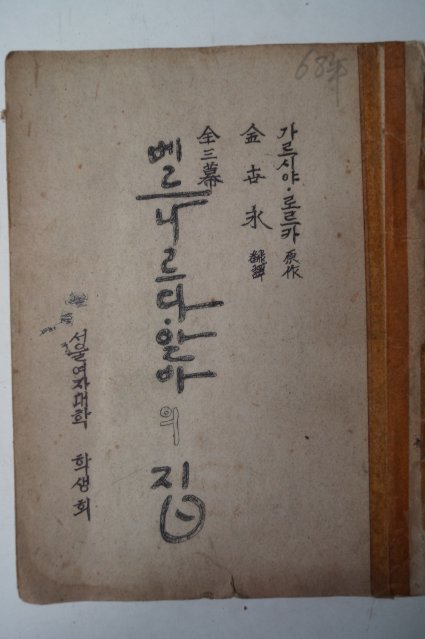 68年
가르시야·로르카 原作
金古永 飜譯
全三幕
베르나르다·알바의 집
서울여자대학 학생회